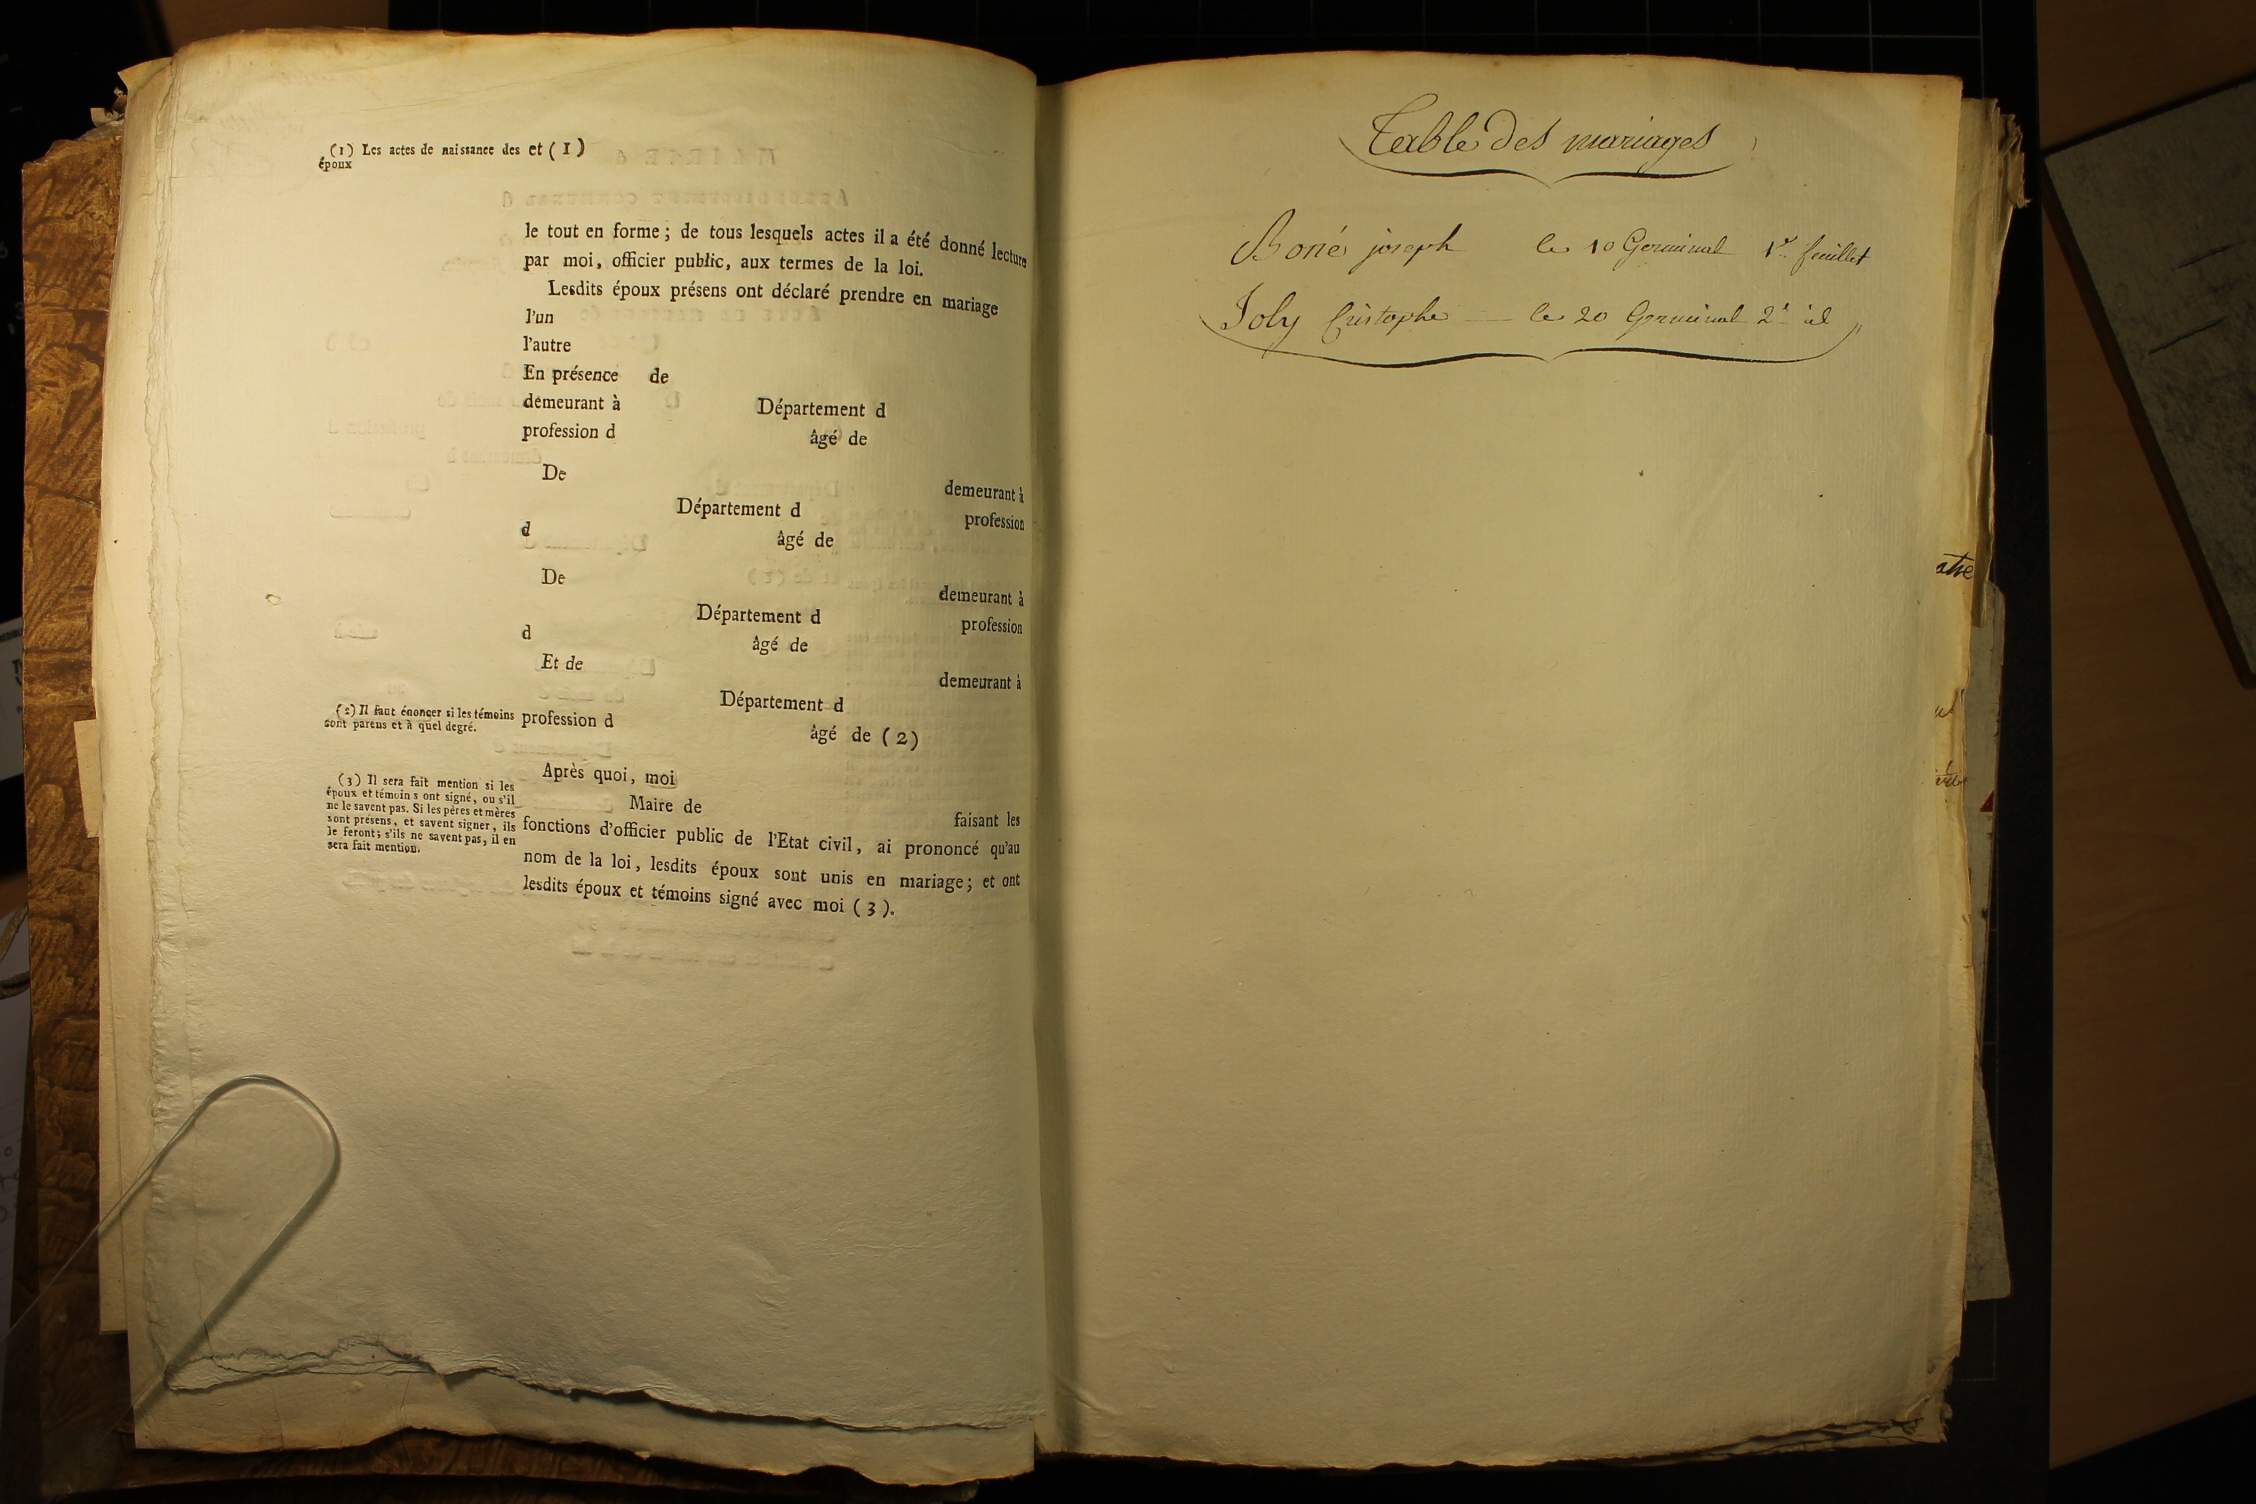 (1) Les actes de naissance des
époux
et (1)
le tout en forme ; de tous lesquels actes il a été donné lecture
par moi, officier public, aux termes de la loi.
Lesdits époux présens ont déclaré prendre en mariage
l'un
l'autre
En présence de
demeurant à Département d
profession d âgé de
De demeurant à
Département d profession
d âgé de
De demeurant à
Département d profession
d âgé de
Et de demeurant à
Département d
profession d âgé de (2)
(2) Il faut énoncer si les témoins
sont parens et à quel degré.
Après quoi, moi
Maire de faisant les
fonctions d'officier public de l'Etat civil, ai prononcé qu'au
nom de la loi, lesdits époux sont unis en mariage; et ont
lesdits époux et témoins signé avec moi (3).
(3) Il sera fait mention si les
époux et témoins ont signé, ou s'il
ne le savent pas. Si les pères et mères
sont présens, et savent signer, ils
le feront; s'ils ne savent pas, il en
sera fait mention.
Table Des mariages
Boné joseph le 10 Germinal 1er feuillet
Joly Cristophe — le 20 Germinal 2e id